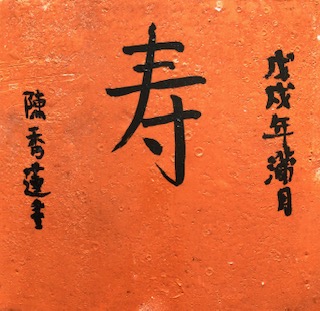 戊戌年蒲月
寿
陳秀蓮書